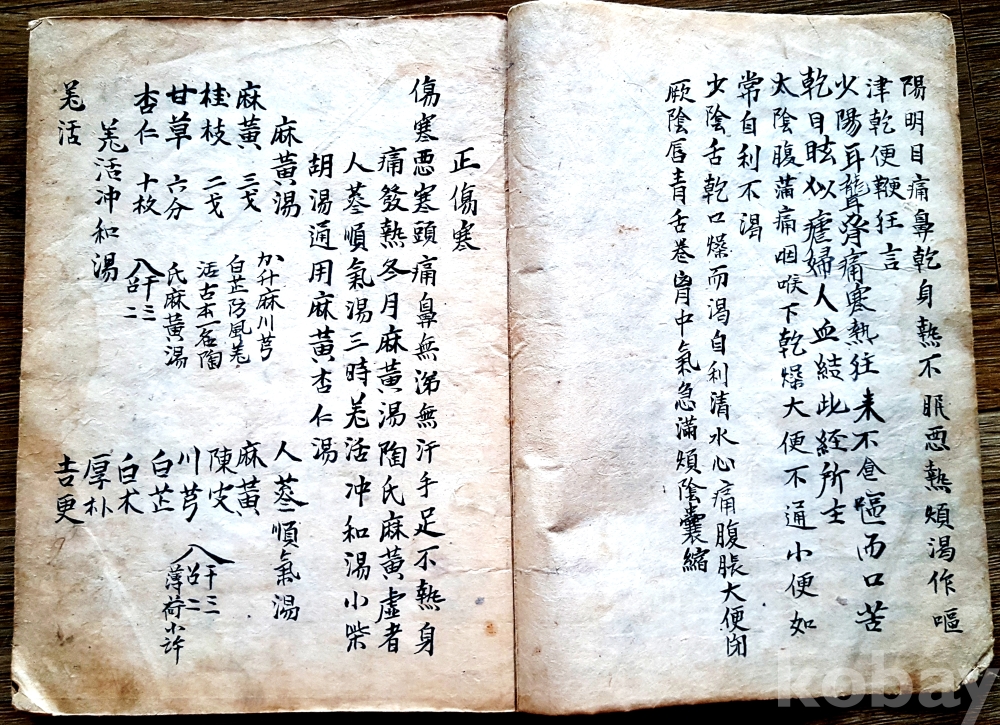 陽明目痛鼻乾身熱不眠惡熱煩渴作嘔
津乾便鞕狂言
少陽耳聾脅痛寒熱往来不食嘔而口苦
乾目眩似瘧婦人血結此經所主
太陰腹滿痛咽喉下乾燥大便不通小便如
常自利不渴
少陰舌乾口燥而渴自利清水心痛腹脹大便閉
厥陰唇青舌卷胷中氣急滿煩陰囊縮
正傷寒
傷寒惡寒頭痛鼻無涕無汗手足不熱身
痛發熱冬月麻黃湯陶氏麻黃虛者
人蔘順氣湯三時羗活冲和湯小柴
胡湯通用麻黃杏仁湯
麻黃湯
麻黃 三戈
桂枝 二戈
甘草 六分
杏仁 十枚
加升麻川芎
白芷防風羗
活古本一名陶
氏麻黃湯
干三
召二
羗活冲和湯
羗活
人蔘順氣湯
麻黃
陳皮
川芎
白芷
白朮
厚朴
吉更
干三
召二
薄荷小許
kobay